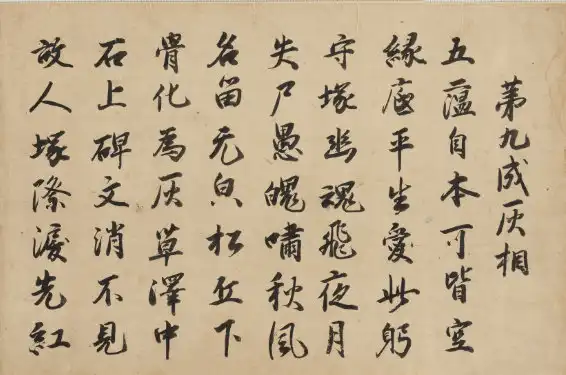 第九成灰相
五蘊自本可皆空
縁底平生愛此躬
守塚幽魂飛夜月
失尸愚魄嘯秋風
名留无皃松丘下
骨化為灰草澤中
石上碑文消不見
故人塚際涙先紅